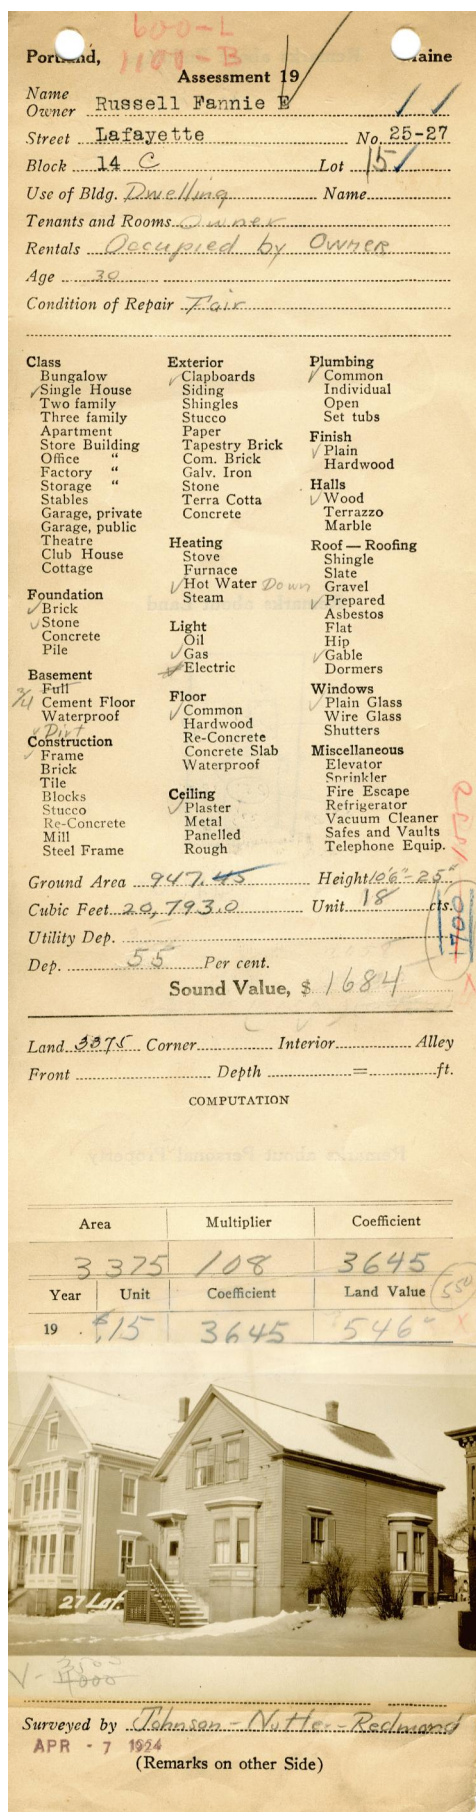 600-L
1100-B
Portland, Maine
Assessment 19
Name
Owner Russell Fannie E
Street Lafayette No. 25-27
Block 14 C Lot 15
Use of Bldg. Dwelling Name
Tenants and Rooms Owner
Rentals Occupied by Owner
Age 30
Condition of Repair Fair
Class
Bungalow
✓ Single House
Two family
Three family
Apartment
Store Building
Office "
Factory "
Storage "
Stables
Garage, private
Garage, public
Theatre
Club House
Cottage
Foundation
✓ Brick
✓ Stone
Concrete
Pile
Basement
3/4 Full
Cement Floor
Waterproof
✓ Dirt
Construction
✓ Frame
Brick
Tile
Blocks
Stucco
Re-Concrete
Mill
Steel Frame
Exterior
✓ Clapboards
Siding
Shingles
Stucco
Paper
Tapestry Brick
Com. Brick
Galv. Iron
Stone
Terra Cotta
Concrete
Heating
Stove
Furnace
✓ Hot Water Down
Steam
Light
Oil
✓ Gas
Electric
Floor
✓ Common
Hardwood
Re-Concrete
Concrete Slab
Waterproof
Ceiling
✓ Plaster
Metal
Panelled
Rough
Plumbing
✓ Common
Individual
Open
Set tubs
Finish
✓ Plain
Hardwood
Halls
✓ Wood
Terrazzo
Marble
Roof — Roofing
Shingle
Slate
Gravel
✓ Prepared
Asbestos
Flat
Hip
✓ Gable
Dormers
Windows
✓ Plain Glass
Wire Glass
Shutters
Miscellaneous
Elevator
Sprinkler
Fire Escape
Refrigerator
Vacuum Cleaner
Safes and Vaults
Telephone Equip.
Ground Area 947.45 Height 10'6"-25"
Cubic Feet 20,793.0 Unit 18 cts.
1700
Utility Dep.
Dep. 55 Per cent.
Sound Value, $ 1684
Land 3375 Corner Interior Alley
Front Depth = ft.
COMPUTATION
Area Multiplier Coefficient
3375 108 3645
Year Unit Coefficient Land Value 550
19 $.15 3645 546
27 Laf.
V - 3500
4000
Surveyed by Johnson-Nutter-Redmond
APR - 7 1924
(Remarks on other Side)